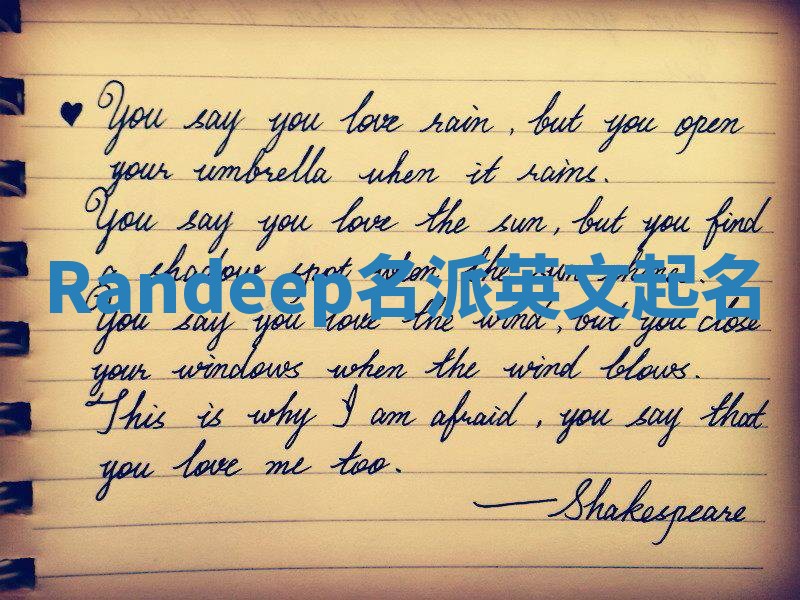 ♥ You say you love rain, but you open
your umbrella when it rains.
You say you love the sun, but you find
a shadow spot when the sun shines.
Randeep名派英文起名
You say you love the wind, but you close
your windows when the wind blows.
This is why I am afraid, you say that
you love me too.
—Shakespeare